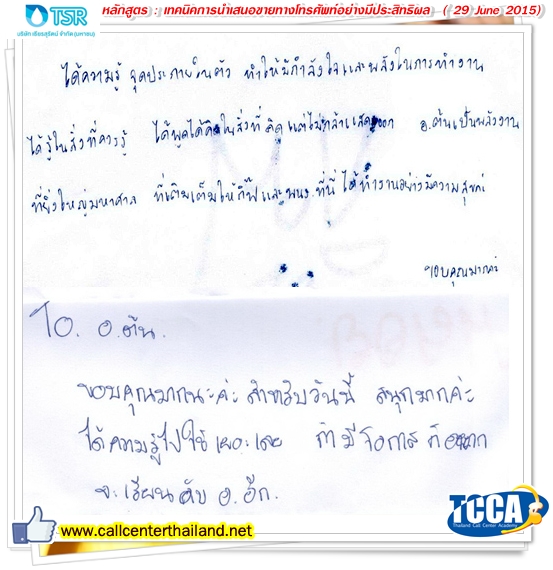 TSR
บริษัท เธียรสุรัตน์ จำกัด (มหาชน)
หลักสูตร : เทคนิคการนำเสนอขายทางโทรศัพท์อย่างมีประสิทธิผล ( 29 June 2015)
ได้ความรู้ จุดประกายในตัว ทำให้มีกำลังใจและพลังในการทำงาน
ได้รู้ในสิ่งที่ควรรู้ ได้พูดได้คิดในสิ่งที่คิด แต่ไม่กล้าแสดงออก อ.ต้นเป็นพลังงาน
ที่ยิ่งใหญ่มหาศาล ที่เติมเต็มให้กิ๊ฟและพนง.ที่นี่ ได้ทำงานอย่างมีความสุขค่ะ
ขอบคุณมากค่ะ
TO. อ.ต้น.
ขอบคุณมากนะค่ะ สำหรับวันนี้ สนุกมากค่ะ
ได้ความรู้ไปใช้เยอะเลย ถ้ามีโอกาส ก็อยาก
จะเรียนกับ อ.อีก.
www.callcenterthailand.net
TCCA
Thailand Call Center Academy